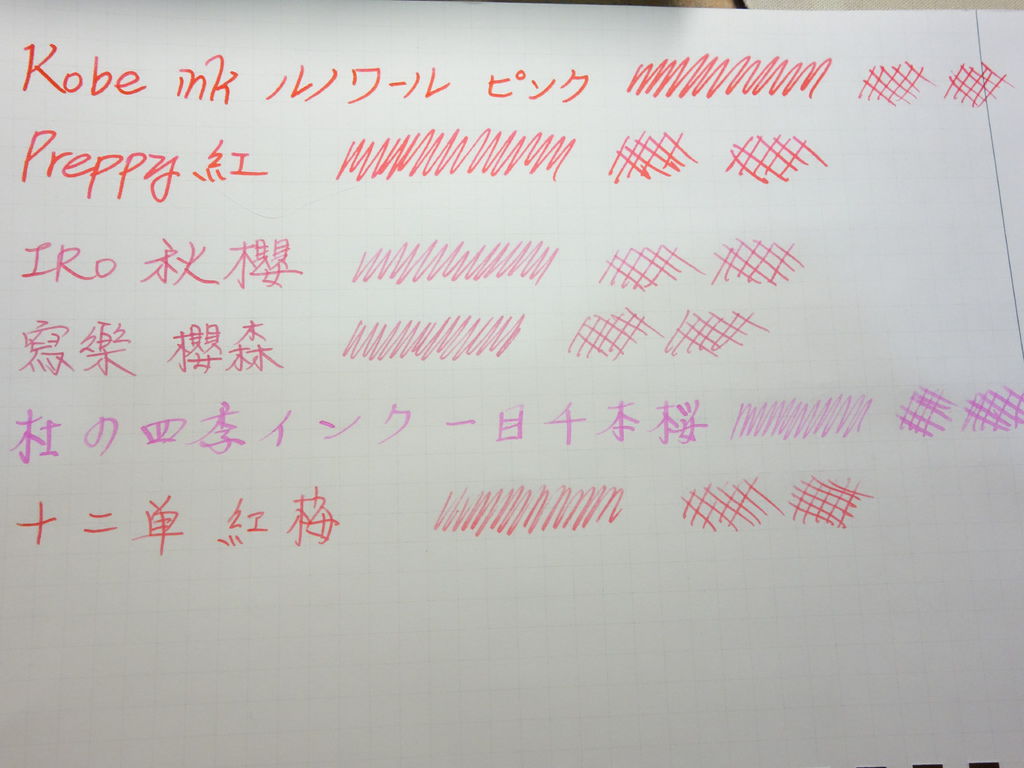 Kobe ink ルノワール ピンク
Preppy 紅
IRo 秋櫻
寫樂 櫻森
杜の四季インク 一目千本桜
十二単 紅梅